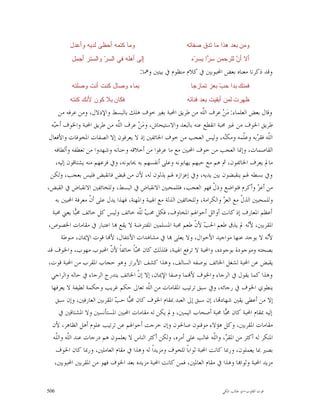 ومن بعد هذا ما تدق صفاته وما كتمه أحظى لديه وأعدل
ألا أنّ للرحمن سرًّا يسرّه إلى أهله في السرّ والستر أجمل
وقد ذكرنا معناه بعض المحبوبين في كلام منظوم في بيتين وهما:
فمنك بدا حبّ بعز تمازجا بماء وصال كنت أنت وصلته
ظهرت لمن أبقيت بعد فنائه فكان بلا كون لأنك كنته
وقال بعض العلماء: مَنْ عرف الله من طريق المحبة بغير خوف هلك بالبسط والإدلال، ومن عرفه من
طريق الخوف من غير محبة انقطع عنه بالبعد والاستيحاش، ومَنْ عرف الله من طريق المحبة والخوف أحبّه
الله فقرّبه وعلّمه ومكّنه، وليس العجب من خوف الخائفين إذ لا يعرفون إلا الصفات المخوفات والأفعال
القاصمات، وإنما العجب من خوف المحبين مع ما عرفوا من أخلاقه وحنانه وشهدوا من تعطفه وألطافه
ما لم يعرف الخائفون، أو هم مع حبهم يهابونه وعلى أنفسهم به يخابونه، وفي فزعهم منه يشتاقون إليه،
وفي بسطه لهم ينقبضون بين يديه، وفي إعزازه لهم يذلون له، لأن من قبض فانقبض فليس بعجب، ولكن
من أعزّ وأكرم فتواضع وذلّ فهو العجب، فللمحبين الانقباض في البسط، وللخائفين الانقباض في القبض،
وللمحبين الذلّ مع العزّ والكرامة، وللخائفين الذلة مع الهيبة والمهنة، فهذا يدل على أنّ معرفة المحبين به
أعظم المعارف إذ كانت أوائل أحوالهم المخاوف، فكل محبّ لله خائف وليس كل خائف محبًّا يعني محبة
المقربين، لأنه لم يذق طعم الحبّ لأنّ طعم محبة المسلمين المفترضة لا يقع بها اعتبار في مقامات الخصوص،
لأنه لا يوجد عنها مواجيد الأحوال، ولا يعلى بها في مشاهدات الانتقال، لأنها قوت الإيمان، منوطة
بصحته وموجودة بوجوده، والمحبة لا ترفع الهيبة، فلذلك كان محبًّا خائفاً لأنّ المحبوب مهوب، والخوف قد
يقبض عن المحبة لشغل الخائف بوصفه السالف، وهذا كشف الأبرار وهو حجاب المقربين من المحبة قوت،
وهذا كما يقول في الرجاء والخوف لأنهما وصفا الإيمان، إلا إنّ الخائف يتدرج الرجاء في حاله والراجي
ينطوي الخوف في رجائه، وفي سبق ترتيب المقامات من الله تعالى حكم غريب وحكمة لطيفة لا يعرفها
إلا من أعطي يقين شهادتها، إن سبق إلى العبد بمقام الخوف كان محبًّا حبّ المقربين العارفين، وإن سبق
إليه بمقام المحبة كان محبًّا محبة أصحاب اليمين، ولم يكن له مقامات المحبين المستأنسين ولا المشتاقين في
مقامات المقربين، وكل هؤلاء موقنون صالحون وإن خرجت أحوالهم عن ترتيب علوم أهل الظاهر، لأن
المنكر له أكثر من المقرّ، والله غالب على أمره، ولكن أكثر الناس لا يعلمون هم درجات عند الله والله
بصير بما يعملون، وربما كانت المحبة ثواباً للخوف ومزيداً له وهذا في مقام العاملين، وربما كان الخوف
مزيد المحبة وثوابها وهذا في مقام العالمين، فمن كانت المحبة مزيده بعد الخوف فهو من المقربين المحبوبين،
506 قوت القلوب-أبو طالب المكي